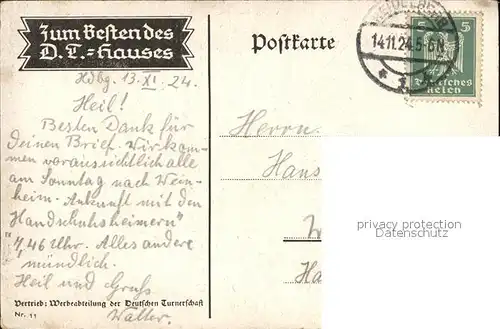 Zum Besten des
D. T.=Hauses
Postkarte
14.11.24.5-6N
5 5
Deutsches
Reich
Hdbg. 13. XI. 24.
Heil!
Besten Dank für
Deinen Brief. Wir kom-
men voraussichtlich alle
am Sonntag nach Wein-
heim. Ankunft mit den
"Handschuhsheimern"
46 Uhr. Alles andere
mündlich.
Heil und Gruß
Walter.
Herrn
Hans
privacy protection
Datenschutz
Vertrieb: Werbeabteilung der Deutschen Turnerschaft
Nr. 11